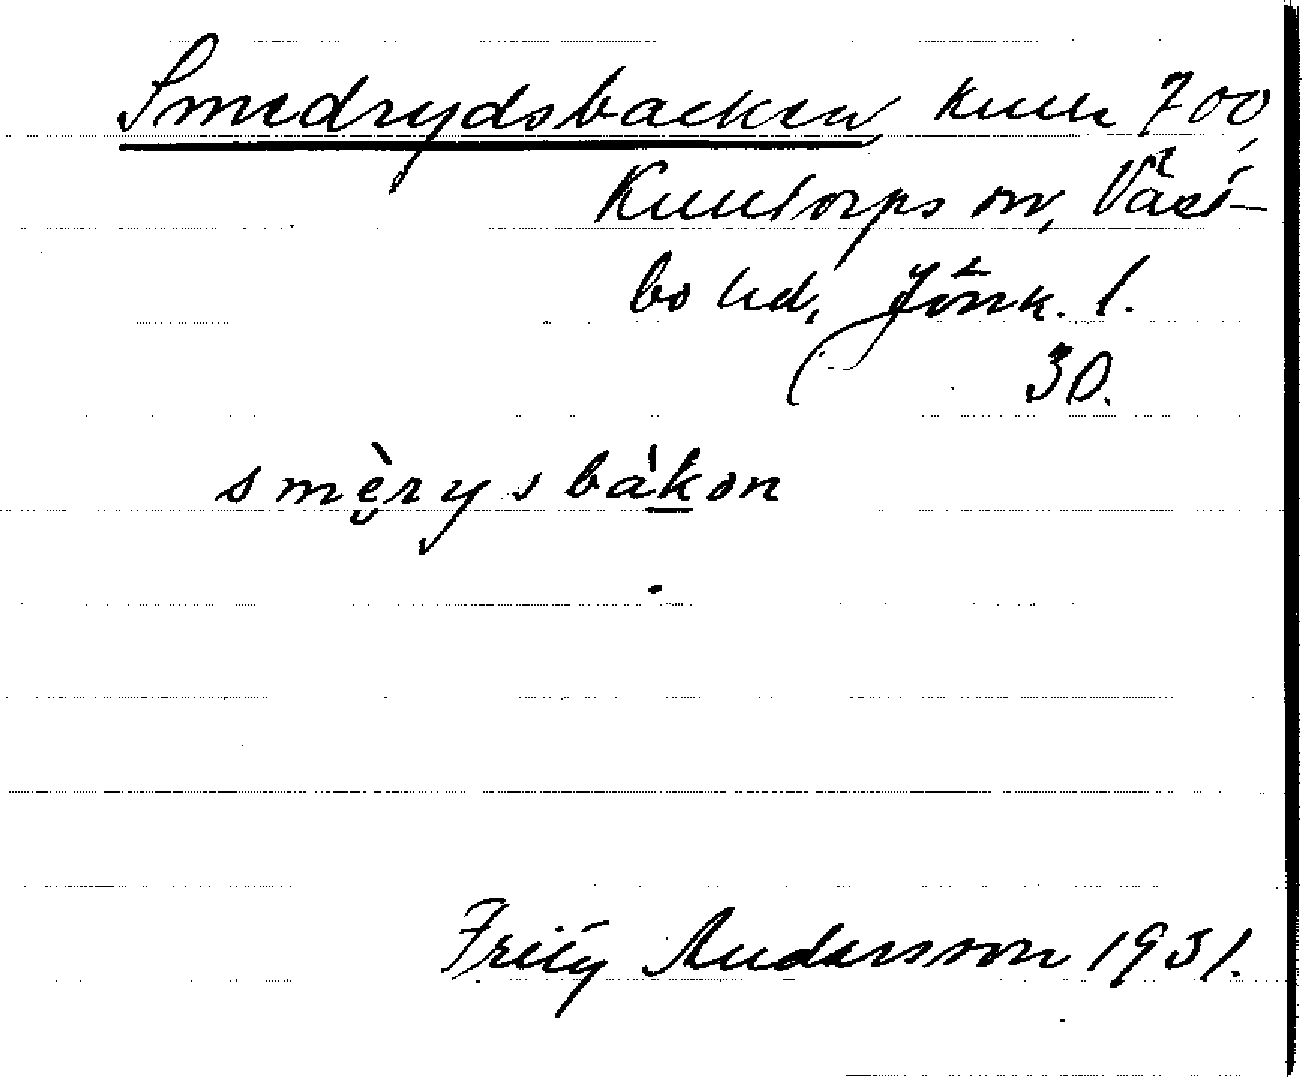 Smedrydsbacken kull 700,
Kulltorps sn, Väst-
bo hd, Jönk. l.
30.
smèrysbákon
Fritz Andersson 1931.